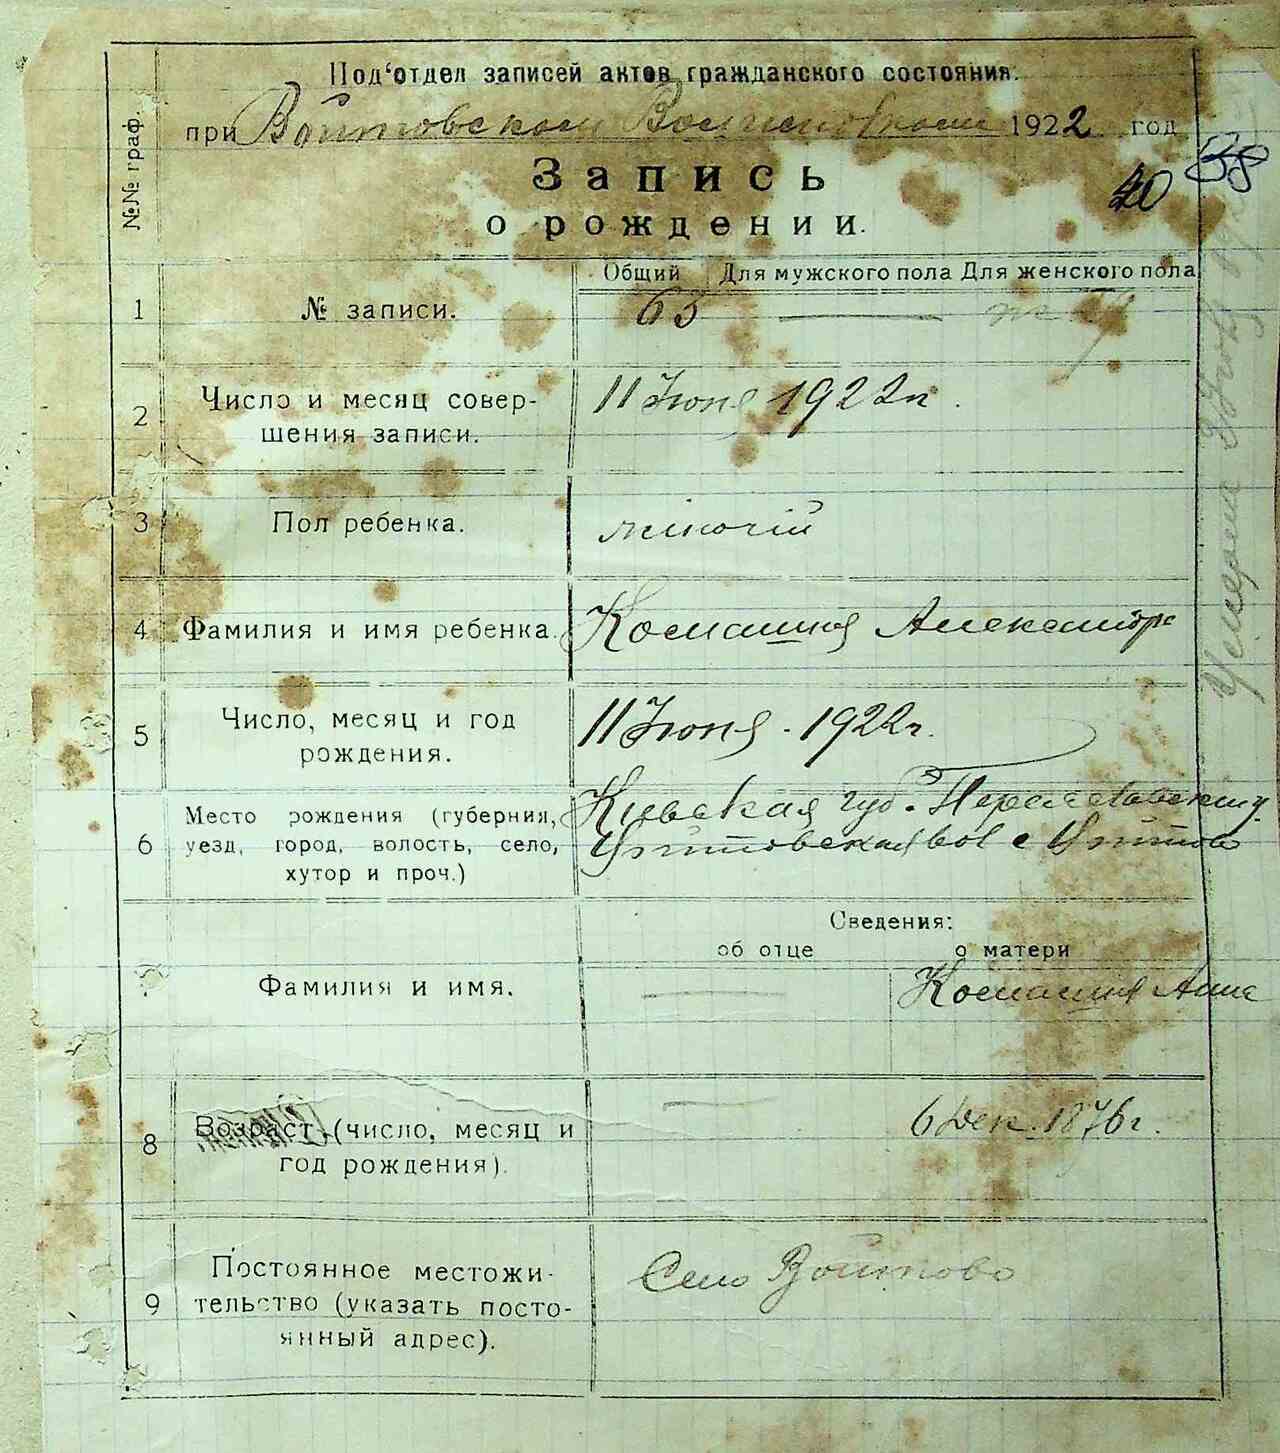 Под'отдел записей актов гражданского состояния.
при Войтовском Волисполкоме 1922 год
№№ граф.
Запись
о рождении.
40
38
Общий Для мужского пола Для женского пола
1 № записи. 63
2 Число и месяц совер-
шения записи.
11 Июня 1922 г.
3 Пол ребенка. жіночій
4 Фамилия и имя ребенка. Александра
5 Число, месяц и год
рождения.
11 Июня 1922 г.
6 Место рождения (губерния,
уезд, город, волость, село,
хутор и проч.)
Киевская губ. Переяславский у.
Войтовская вол с Войтово
Сведения:
об отце о матери
7 Фамилия и имя. Анна
8 Возраст (число, месяц и
год рождения).
6 Дек. 1876 г.
9 Постоянное местожи-
тельство (указать посто-
янный адрес).
Село Войтово